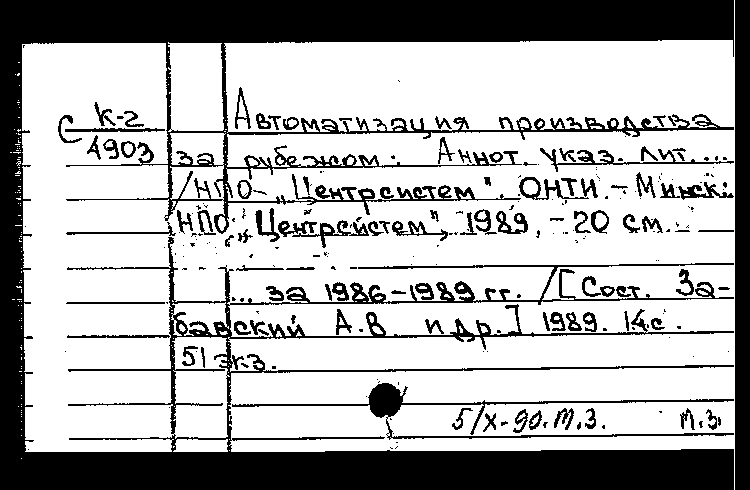 С К-2 Автоматизация производства
4903 за рубежом: Аннот. указ. лит....
/НПО „Центрсистем". ОНТИ – Минск:
НПО „Центрсистем", 1989, – 20 см.
... за 1986–1989 гг. /[Сост. За-
бавский А.В. и др.] 1989. 14с.
51 экз.
5/X-90. М.З. М.З.